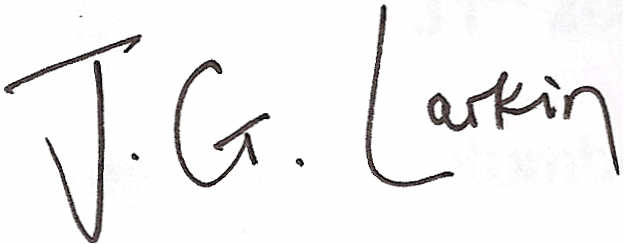 J. G. Larkin